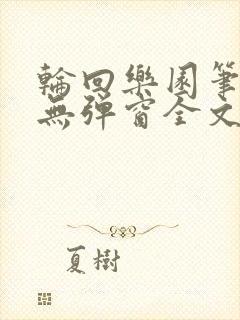 輪回樂園筆
無彈窗全文
夏樹